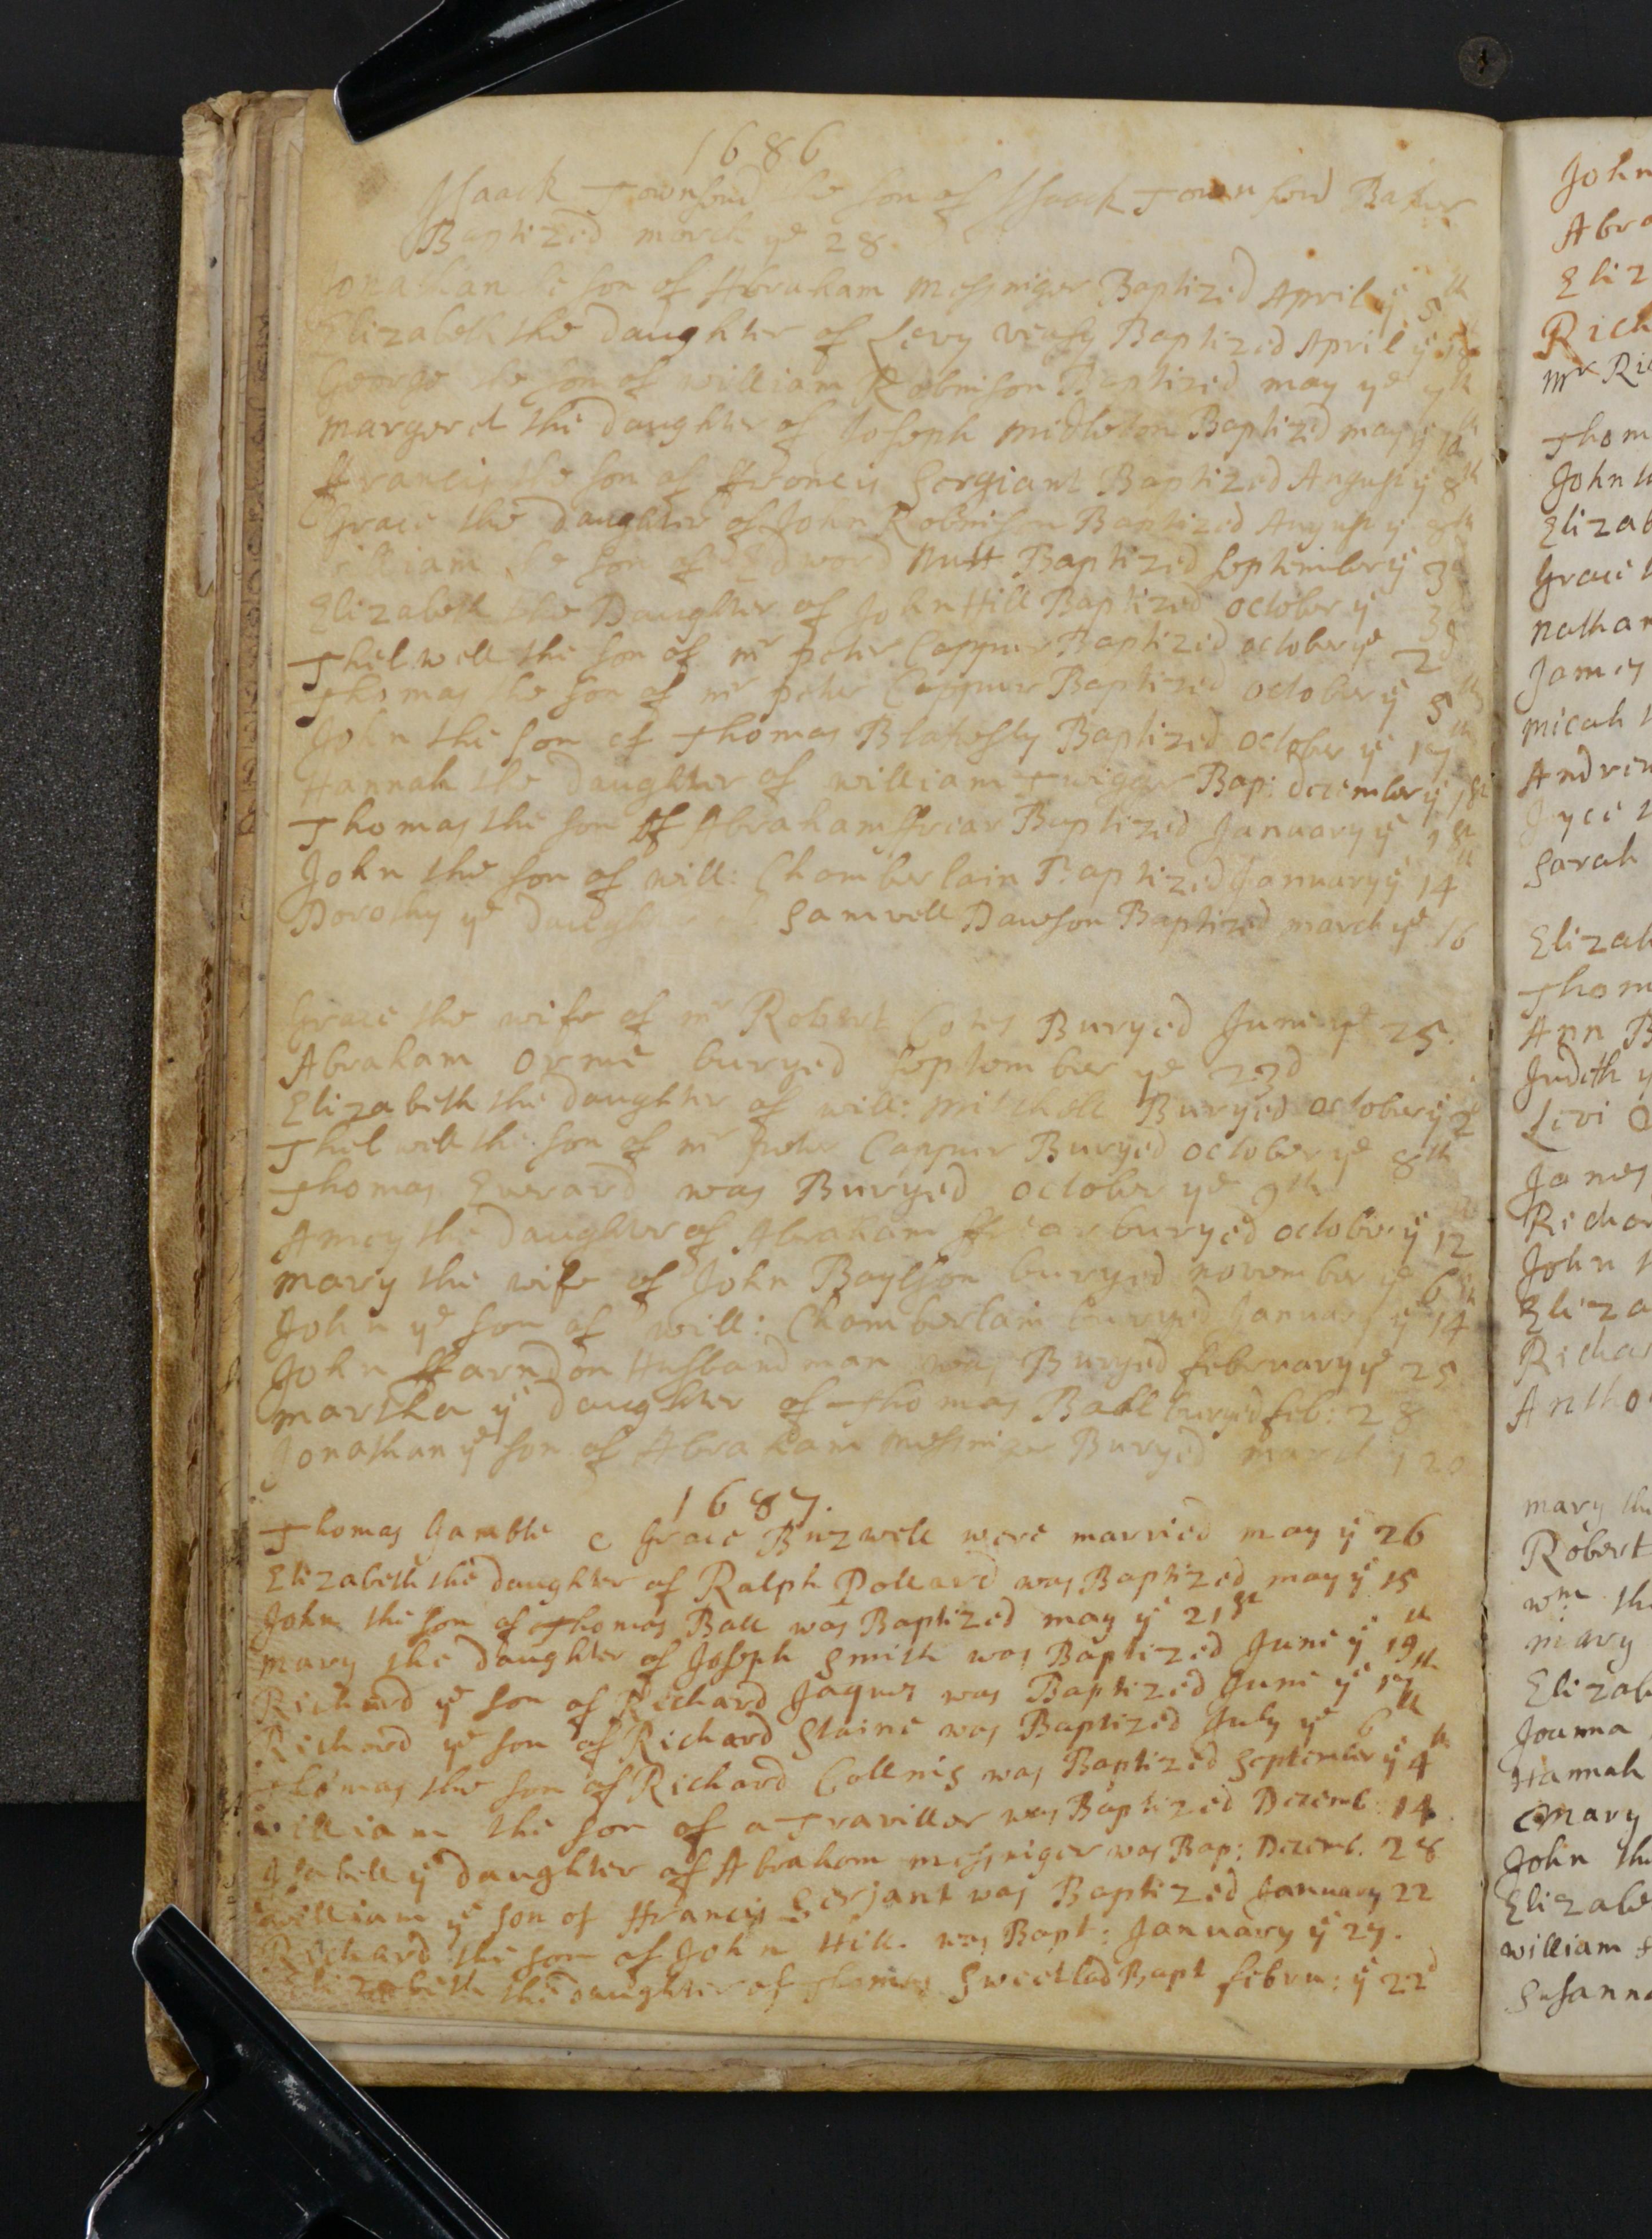 1686
Isaack Townsend the son of Isaack Townsend Baker
Baptized march ye 28
Jonathan the son of Abraham messniger Baptized April ye 5th
Elizabeth the daughter of Levy Baptized April ye 18
George the son of william Robinson Baptized may ye 9th
margeret the daughter of Joseph midleton Baptized may ye
ffrancis the son of ffrancis Sergiant Baptized August ye 8th
Grace the daughter of John Robinson Baptized August ye 8th
william the son of Edward nutt Baptized September ye 3d
Elizabeth the Daughter of John Hill Baptized october ye 3d
Thelwell the son of mr peter Capper Baptized october ye 2d
Thomas the son of mr peter Capper Baptized october ye 5th
John the son of Thomas Blakesly Baptized october ye 17th
Hannah the daughter of william Twigger Bap: december ye
Thomas the son of Abraham ffrear Baptized January ye
John the son of will: Chamberlain Baptized January ye 14th
Dorothy ye daughter of Samvell Dawson Baptized march ye 16
Grace the wife of mr Robert Cotes Buryed June ye 25.
Abraham orme buryed september ye 23d
Elizabeth the daughter of will: mitchell Buryed october ye 2
Thelwell the son of mr peter Capper Buryed october ye 8th
Thomas Everard was Buryed october ye 9th
Amey the daughter of Abraham ffrear buryed october ye 12th
mary the wife of John Baylson buryed november ye 6th
John ye son of will: Chamberlain buryed January ye 14
John ffarndon Husbandman was Buryed february ye 25
martha ye daughter of Thomas Ball buryed feb: 28
Jonathan ye son of Abraham messniger Buryed march ye 20
1687.
Thomas Gamble & Grace Buzwell were married may ye 26
Elizabeth the daughter of Ralph Pollard was Baptized may ye 15
John the son of Thomas Ball was Baptized may ye 21st
mary the daughter of Joseph Smith was Baptized June ye 19th
Richard ye son of Richard Jaques was Baptized June ye 17th
Richard ye son of Richard Staine was Baptized July ye 6th
Thomas the son of Richard Collnis was Baptized September ye 4th
william the son of a Traviller was Baptized Decemb: 14.
Isabell ye daughter of Abraham messniger was Bap: Decemb. 28
william ye son of ffrancis Serjant was Baptized January 22
Richard the son of John Hill. was Bapt: January ye 27.
Elizabeth the daughter of Thomas Sweetlad Bapt febru: ye 22d
John
Abra
Eliz
Rich
Mr Ric
Thom
John th
Elizab
Grace t
nathan
James
micah t
Andrew
Joyce t
Sarah
Elizab
Thom
Ann B
Judeth y
Levi
James
Richar
John t
Eliza
Richar
Antho
mary the
Robert
wm the
mary
Elizab
Joanna
Hannah
Mary
John the
Elizabe
william
Susanna